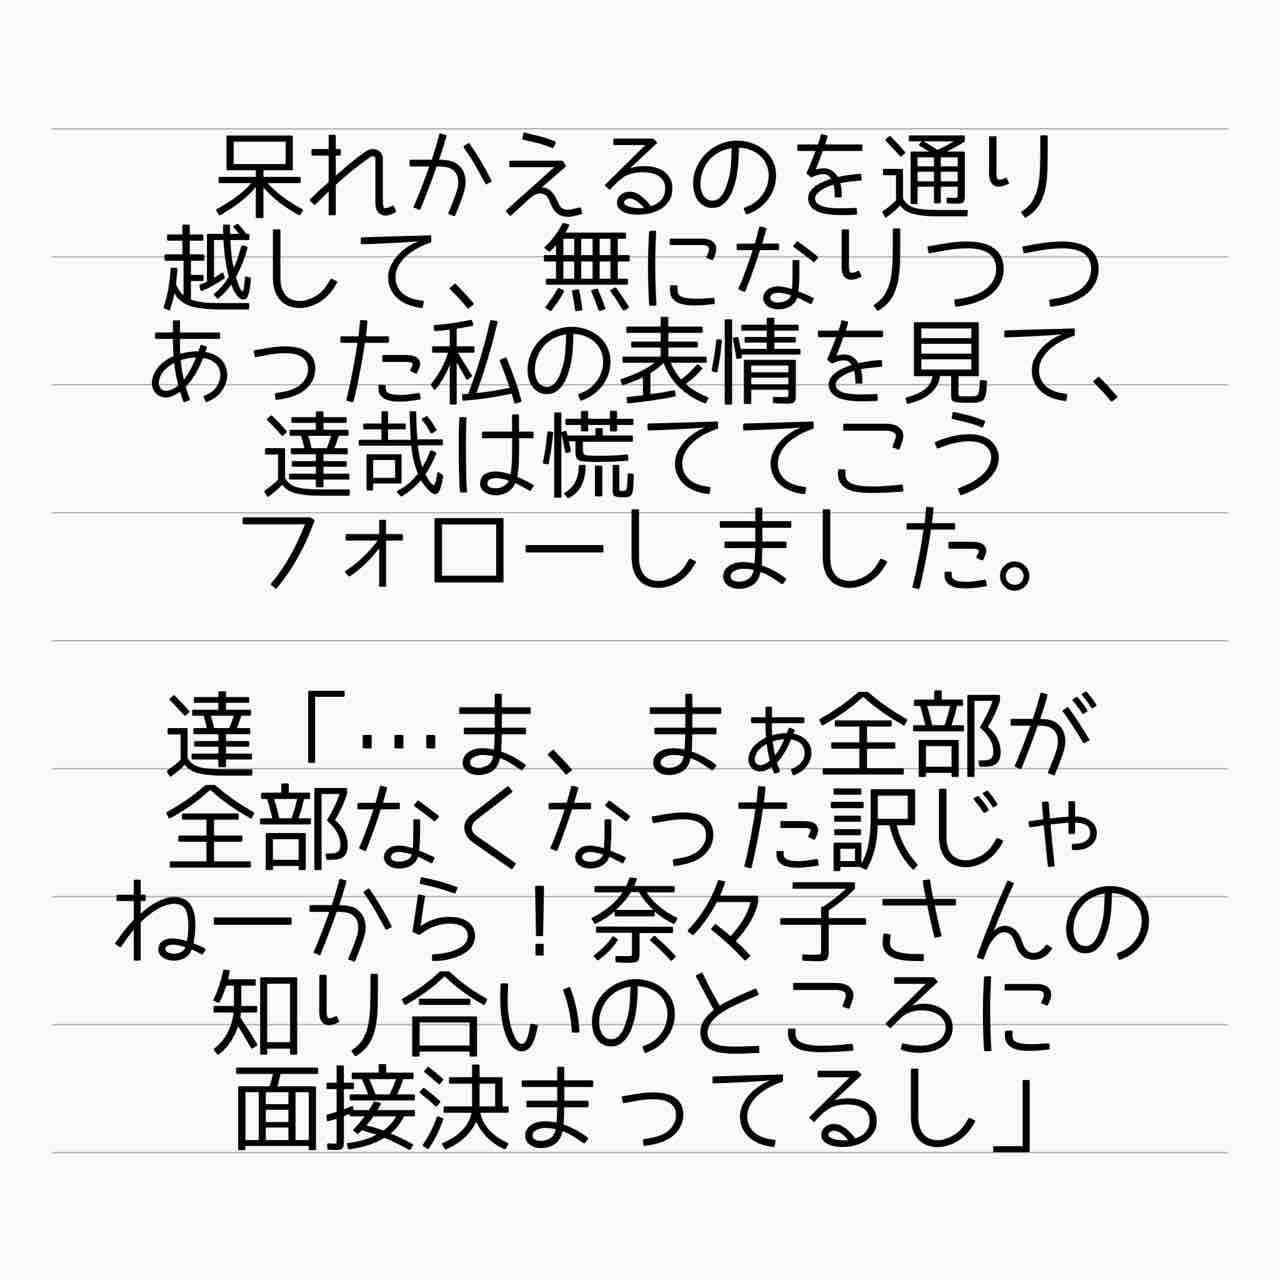 呆れかえるのを通り
越して、無になりつつ
あった私の表情を見て、
達哉は慌ててこう
フォローしました。
達「…ま、まぁ全部が
全部なくなった訳じゃ
ねーから！奈々子さんの
知り合いのところに
面接決まってるし」